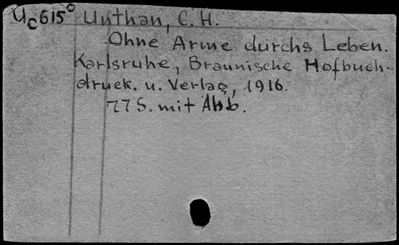 Uc615° Unthan, C. H.
Ohne Arme durchs Leben.
Karlsruhe, Braunische Hofbuch-
druck. u. Verlag, 1916.
77 S. mit Abb.